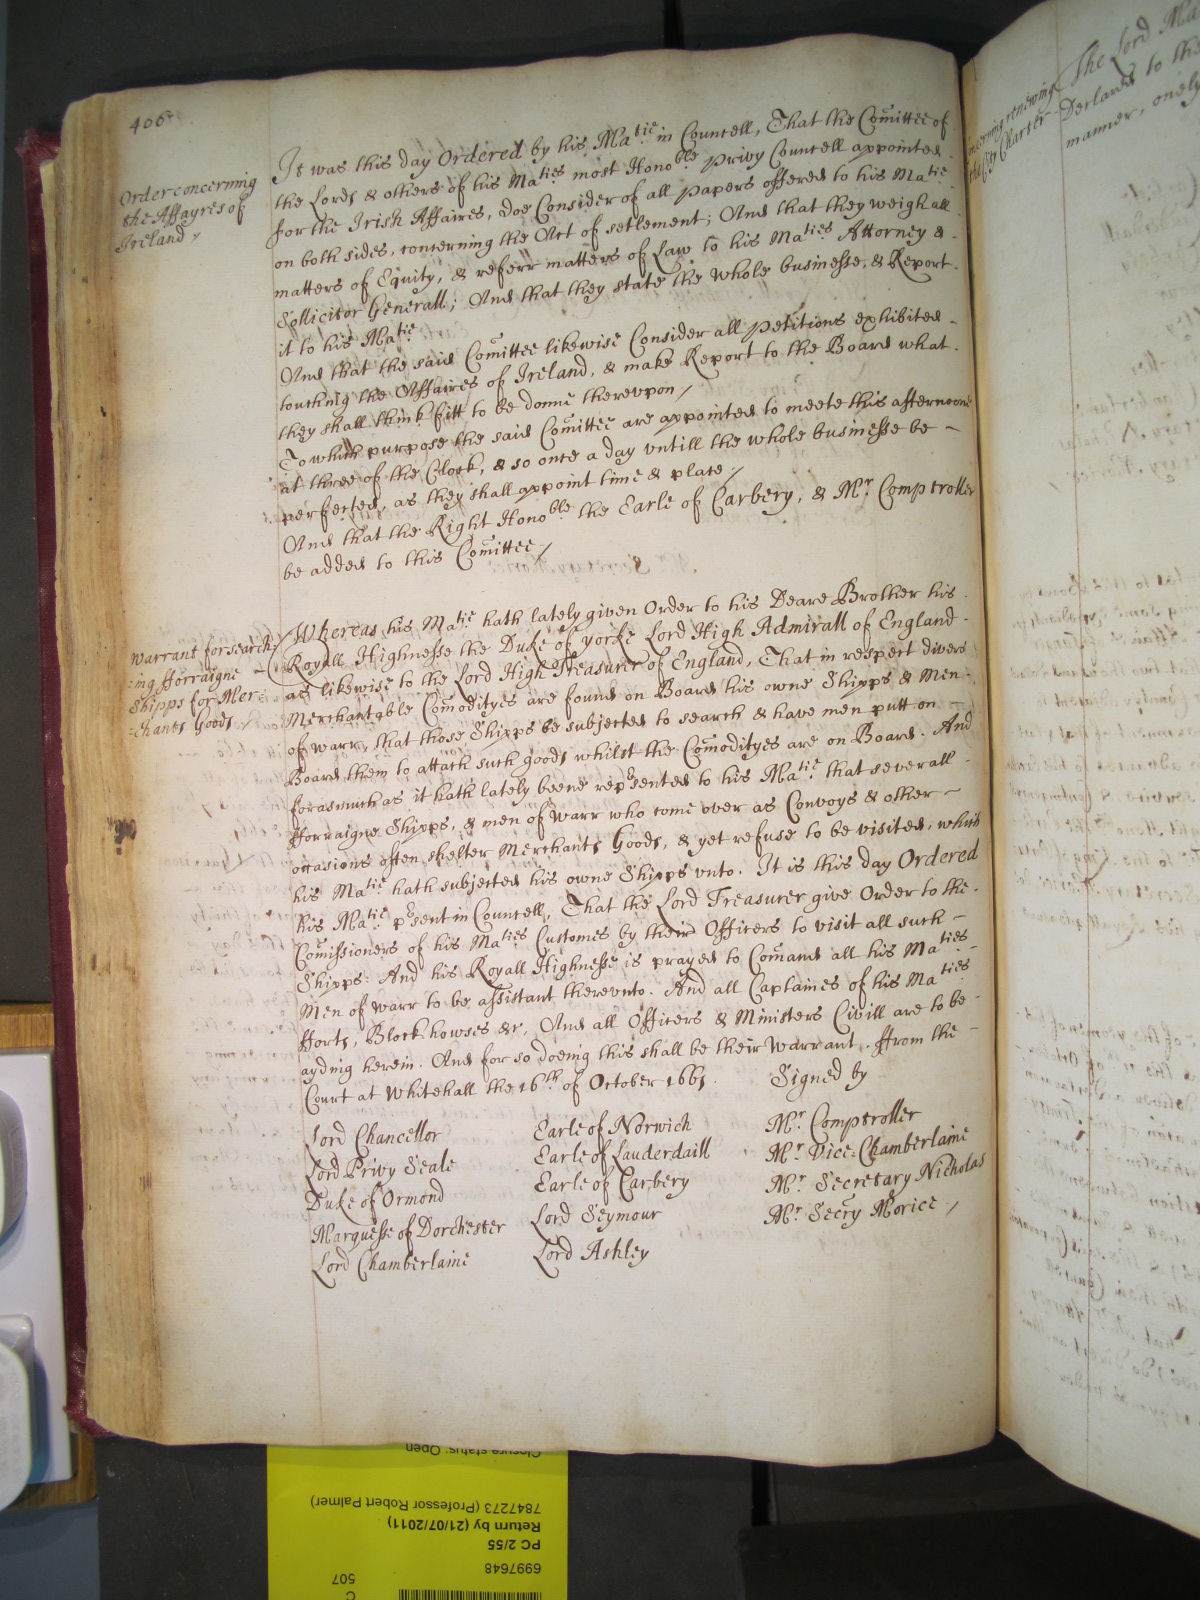 406
Order concerning
the Affayres of
Ireland /
It was this day Ordered by his Ma^tie in Councell, That the Comittee of
the Lords & others of his Ma^ties most Hono^ble Privy Councell appointed
for the Irish Affaires, doe Consider of all Papers offered to his Ma^tie
on both sides, concerning the Act of setlement; And that they weigh all
matters of Equity, & referr matters of Law to his Ma^ties Attorney &
Sollicitor Generall; And that they state the whole businesse, & Report
it to his Ma^tie
And that the said Comittee likewise Consider all Petitions exhibited
touching the Affaires of Ireland, & make Report to the Board what
they shall think fitt to be donne therevpon /
To which purpose the said Comittee are appointed to meete this afternoone
at three of the Clock, & so once a day vntill the whole businesse be
perfected, as they shall appoint time & place /
And that the Right Hono^ble the Earle of Carbery, & M^r Comptroller
be added to this Comittee /
Warrant for search:
:ing fforraigne
Shipps for Mer:
:chants Goods /
Whereas his Ma^tie hath lately given Order to his Deare Brother his
Royall Highnesse the Duke of yorke Lord High Admirall of England
as likewise to the Lord High Treasurer of England, That in respect divers
Merchantable Comodityes are found on Board his owne Shipps & Men
of warr, that those Shipps be subjected to search & have men putt on
Board them to attach such goods whilst the Comodityes are on Board. And
forasmuch as it hath lately beene rep^rsented to his Ma^tie that severall
fforraigne Shipps, & men of warr who come over as Convoys & other
occasions often shelter Merchants Goods, & yet refuse to be visited, which
his Ma^tie hath subjected his owne Shipps vnto. It is this day Ordered
his Ma^tie p^rsent in Councell, That the Lord Treasurer give Order to the
Comissioners of his Ma^ties Customes by their Officers to visit all such
Shipps: And his Royall Highnesse is prayed to Comand all his Ma^ties
Men of warr to be assistant therevnto. And all Captaines of his Ma^ties
fforts, Block-howses &c, And all Officers & Ministers Civill are to be
ayding herein. And for so doeing this shall be their Warrant. ffrom the
Court at Whitehall the 16^th of October 1661. Signed by
Lord Chancellor
Lord Privy Seale
Duke of Ormond
Marquesse of Dorchester
Lord Chamberlaine
Earle of Norwich
Earle of Lauderdaill
Earle of Carbery
Lord Seymour
Lord Ashley
M^r Comptroller
M^r Vice-Chamberlaine
M^r Secretary Nicholas
M^r Secry Morice /
renewing
the City Charter
The Lord Ma
Declared to the
manner, onely
Closure status: Open
7847273 (Professor Robert Palmer)
Return by (21/07/2011)
PC 2/55
6997648
C
507